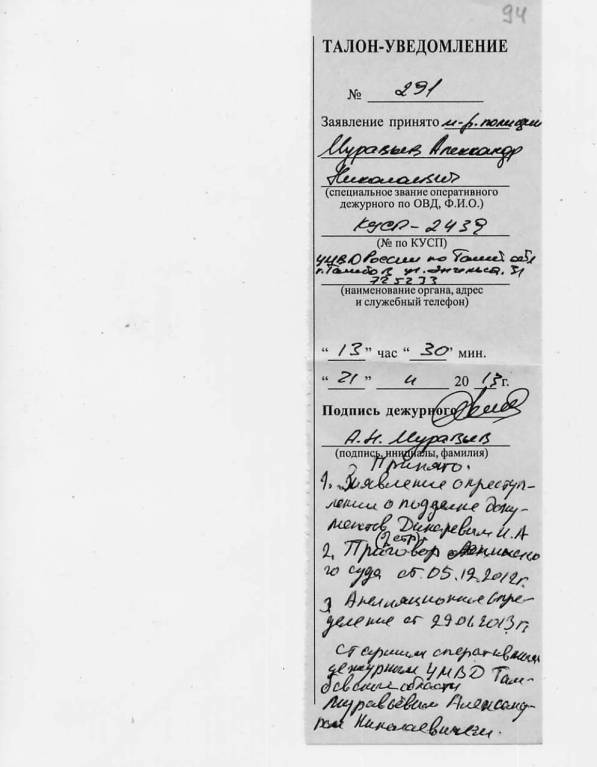 94
ТАЛОН-УВЕДОМЛЕНИЕ
№ 291
Заявление принято м-р. полиции
Муравьев Александр
Николаевич
(специальное звание оперативного
дежурного по ОВД, Ф.И.О.)
КУСП - 2439
(№ по КУСП)
УМВД России по Тамб. обл
г. Тамбов ул. Энгельса. 31
725233
(наименование органа, адрес
и служебный телефон)
“ 13 ” час “ 30 ” мин.
“ 21 ” 11 20 13 г.
Подпись дежурного
А.Н. Муравьев
(подпись, инициалы, фамилия)
Принято.
1. Заявление о преступ-
лении о подделке доку-
ментов Динаревым И.А
(2 стр)
2. Приговор Ленинско
го суда от 05.12.2012г.
3. Апелляционное опре-
деление от 2013г.
старшим оперативным
дежурным УМВД Там-
бовской области
Муравьёвым Александ-
ром Николаевичем.